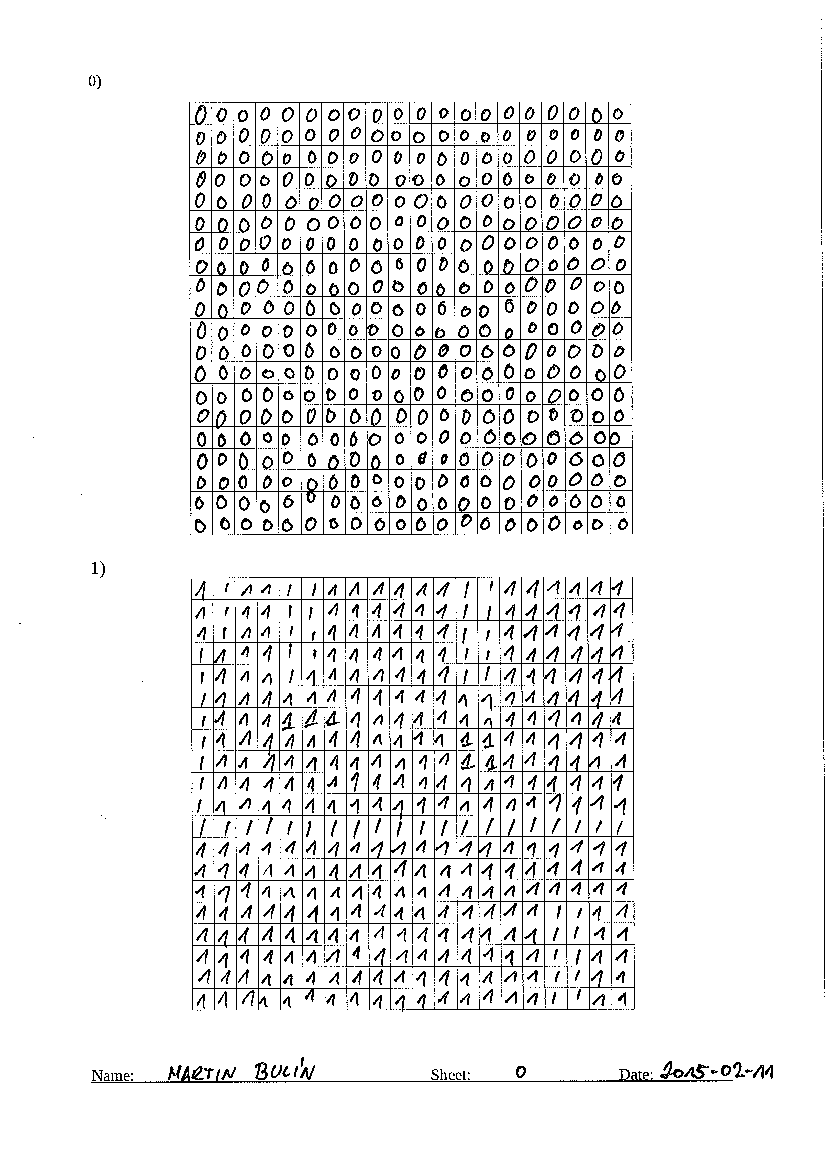 0)
0 0 0 0 0 0 0 0 0 0 0 0 0 0 0 0 0 0 0 0
0 0 0 0 0 0 0 0 0 0 0 0 0 0 0 0 0 0 0 0
0 0 0 0 0 0 0 0 0 0 0 0 0 0 0 0 0 0 0 0
0 0 0 0 0 0 0 0 0 0 0 0 0 0 0 0 0 0 0 0
0 0 0 0 0 0 0 0 0 0 0 0 0 0 0 0 0 0 0 0
0 0 0 0 0 0 0 0 0 0 0 0 0 0 0 0 0 0 0 0
0 0 0 0 0 0 0 0 0 0 0 0 0 0 0 0 0 0 0 0
0 0 0 0 0 0 0 0 0 0 0 0 0 0 0 0 0 0 0 0
0 0 0 0 0 0 0 0 0 0 0 0 0 0 0 0 0 0 0 0
0 0 0 0 0 0 0 0 0 0 0 0 0 0 0 0 0 0 0 0
0 0 0 0 0 0 0 0 0 0 0 0 0 0 0 0 0 0 0 0
0 0 0 0 0 0 0 0 0 0 0 0 0 0 0 0 0 0 0 0
0 0 0 0 0 0 0 0 0 0 0 0 0 0 0 0 0 0 0 0
0 0 0 0 0 0 0 0 0 0 0 0 0 0 0 0 0 0 0 0
0 0 0 0 0 0 0 0 0 0 0 0 0 0 0 0 0 0 0 0
0 0 0 0 0 0 0 0 0 0 0 0 0 0 0 0 0 0 0 0
0 0 0 0 0 0 0 0 0 0 0 0 0 0 0 0 0 0 0 0
0 0 0 0 0 0 0 0 0 0 0 0 0 0 0 0 0 0 0 0
0 0 0 0 0 0 0 0 0 0 0 0 0 0 0 0 0 0 0 0
0 0 0 0 0 0 0 0 0 0 0 0 0 0 0 0 0 0 0 0
1)
1 1 1 1 1 1 1 1 1 1 1 1 1 1 1 1 1 1 1 1
1 1 1 1 1 1 1 1 1 1 1 1 1 1 1 1 1 1 1 1
1 1 1 1 1 1 1 1 1 1 1 1 1 1 1 1 1 1 1 1
1 1 1 1 1 1 1 1 1 1 1 1 1 1 1 1 1 1 1 1
1 1 1 1 1 1 1 1 1 1 1 1 1 1 1 1 1 1 1 1
1 1 1 1 1 1 1 1 1 1 1 1 1 1 1 1 1 1 1 1
1 1 1 1 1 1 1 1 1 1 1 1 1 1 1 1 1 1 1 1
1 1 1 1 1 1 1 1 1 1 1 1 1 1 1 1 1 1 1 1
1 1 1 1 1 1 1 1 1 1 1 1 1 1 1 1 1 1 1 1
1 1 1 1 1 1 1 1 1 1 1 1 1 1 1 1 1 1 1 1
1 1 1 1 1 1 1 1 1 1 1 1 1 1 1 1 1 1 1 1
1 1 1 1 1 1 1 1 1 1 1 1 1 1 1 1 1 1 1 1
1 1 1 1 1 1 1 1 1 1 1 1 1 1 1 1 1 1 1 1
1 1 1 1 1 1 1 1 1 1 1 1 1 1 1 1 1 1 1 1
1 1 1 1 1 1 1 1 1 1 1 1 1 1 1 1 1 1 1 1
1 1 1 1 1 1 1 1 1 1 1 1 1 1 1 1 1 1 1 1
1 1 1 1 1 1 1 1 1 1 1 1 1 1 1 1 1 1 1 1
1 1 1 1 1 1 1 1 1 1 1 1 1 1 1 1 1 1 1 1
1 1 1 1 1 1 1 1 1 1 1 1 1 1 1 1 1 1 1 1
1 1 1 1 1 1 1 1 1 1 1 1 1 1 1 1 1 1 1 1
Name: MARTIN BULÍN Sheet: 0 Date: 2015-02-11